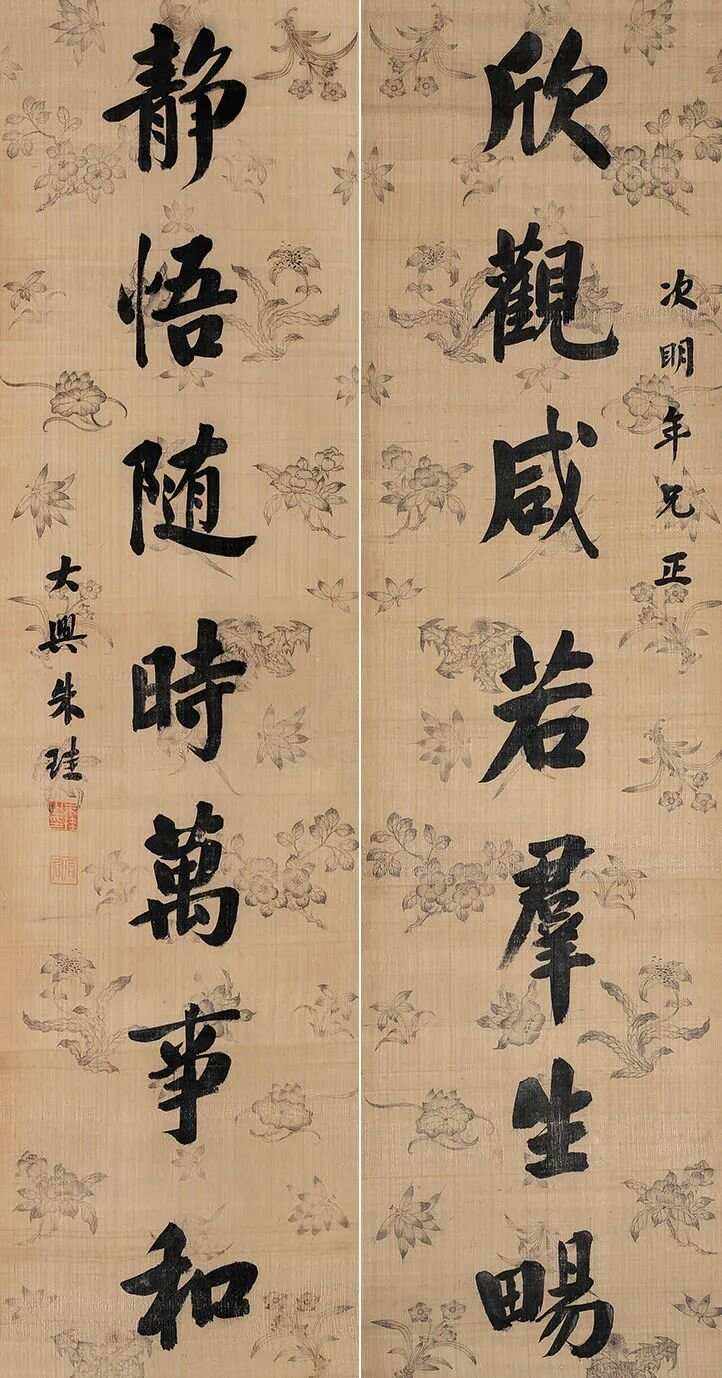 次明年兄正
欣觀咸若羣生暢
静悟随時萬事和
大興朱珪